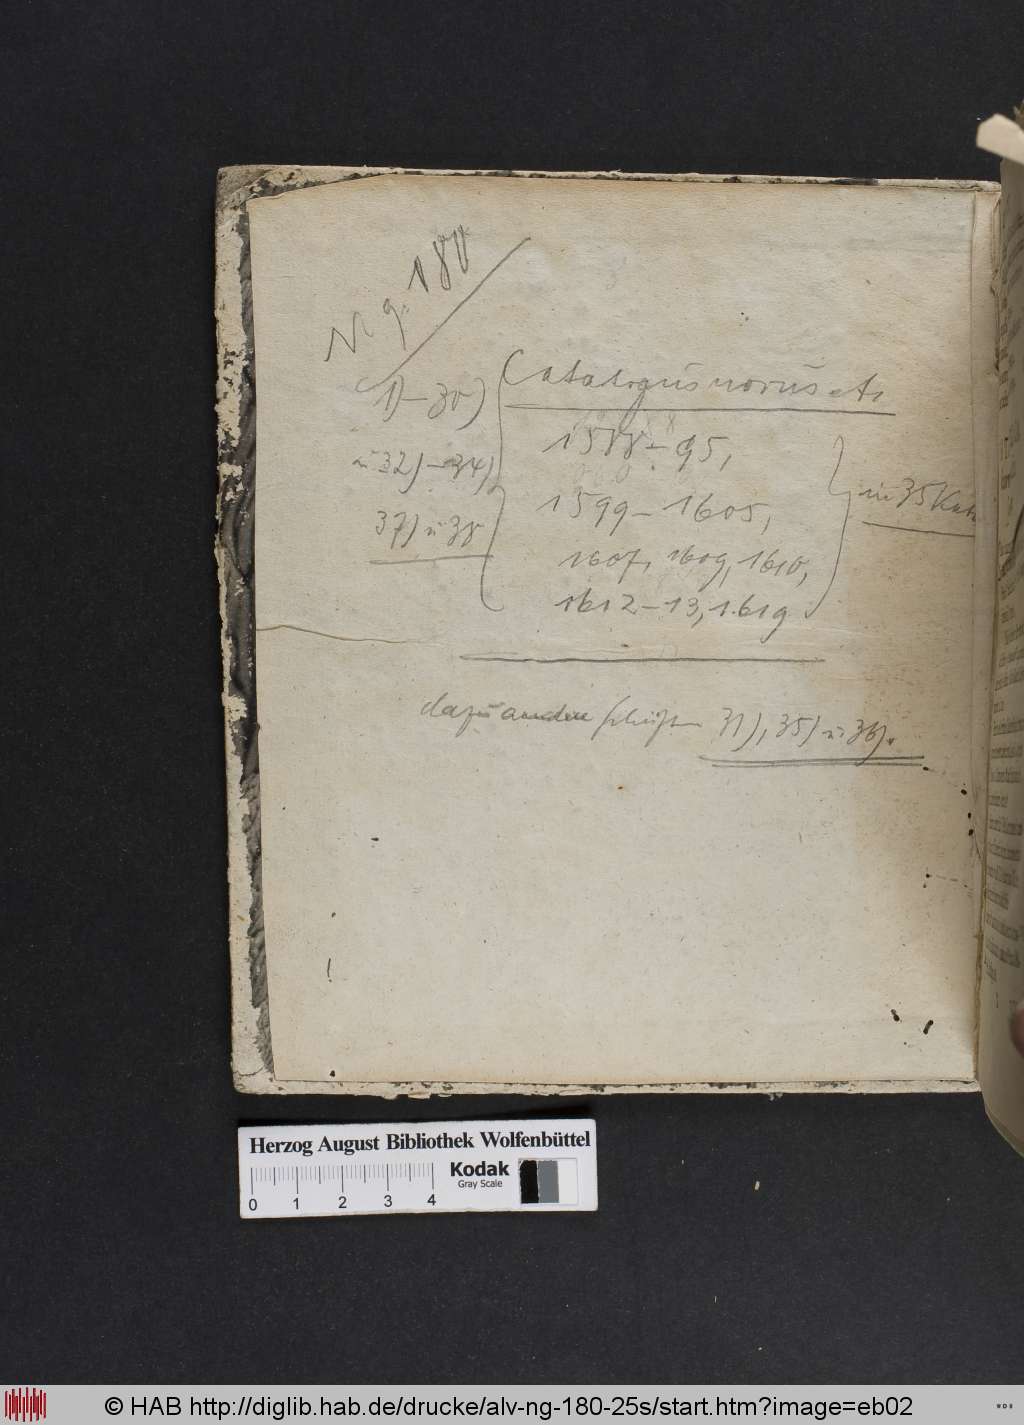 Ng. 180
Catalogus novus etc
1)–30)
1588–95,
u 32)–34)
1599–1605,
in 35 Kat
37) u 38
1607, 1609, 1610,
1612–13, 1619
dazu andere Schriften 31), 35) u 36).
Herzog August Bibliothek Wolfenbüttel
Kodak
Gray Scale
0 1 2 3 4
© HAB http://diglib.hab.de/drucke/alv-ng-180-25s/start.htm?image=eb02